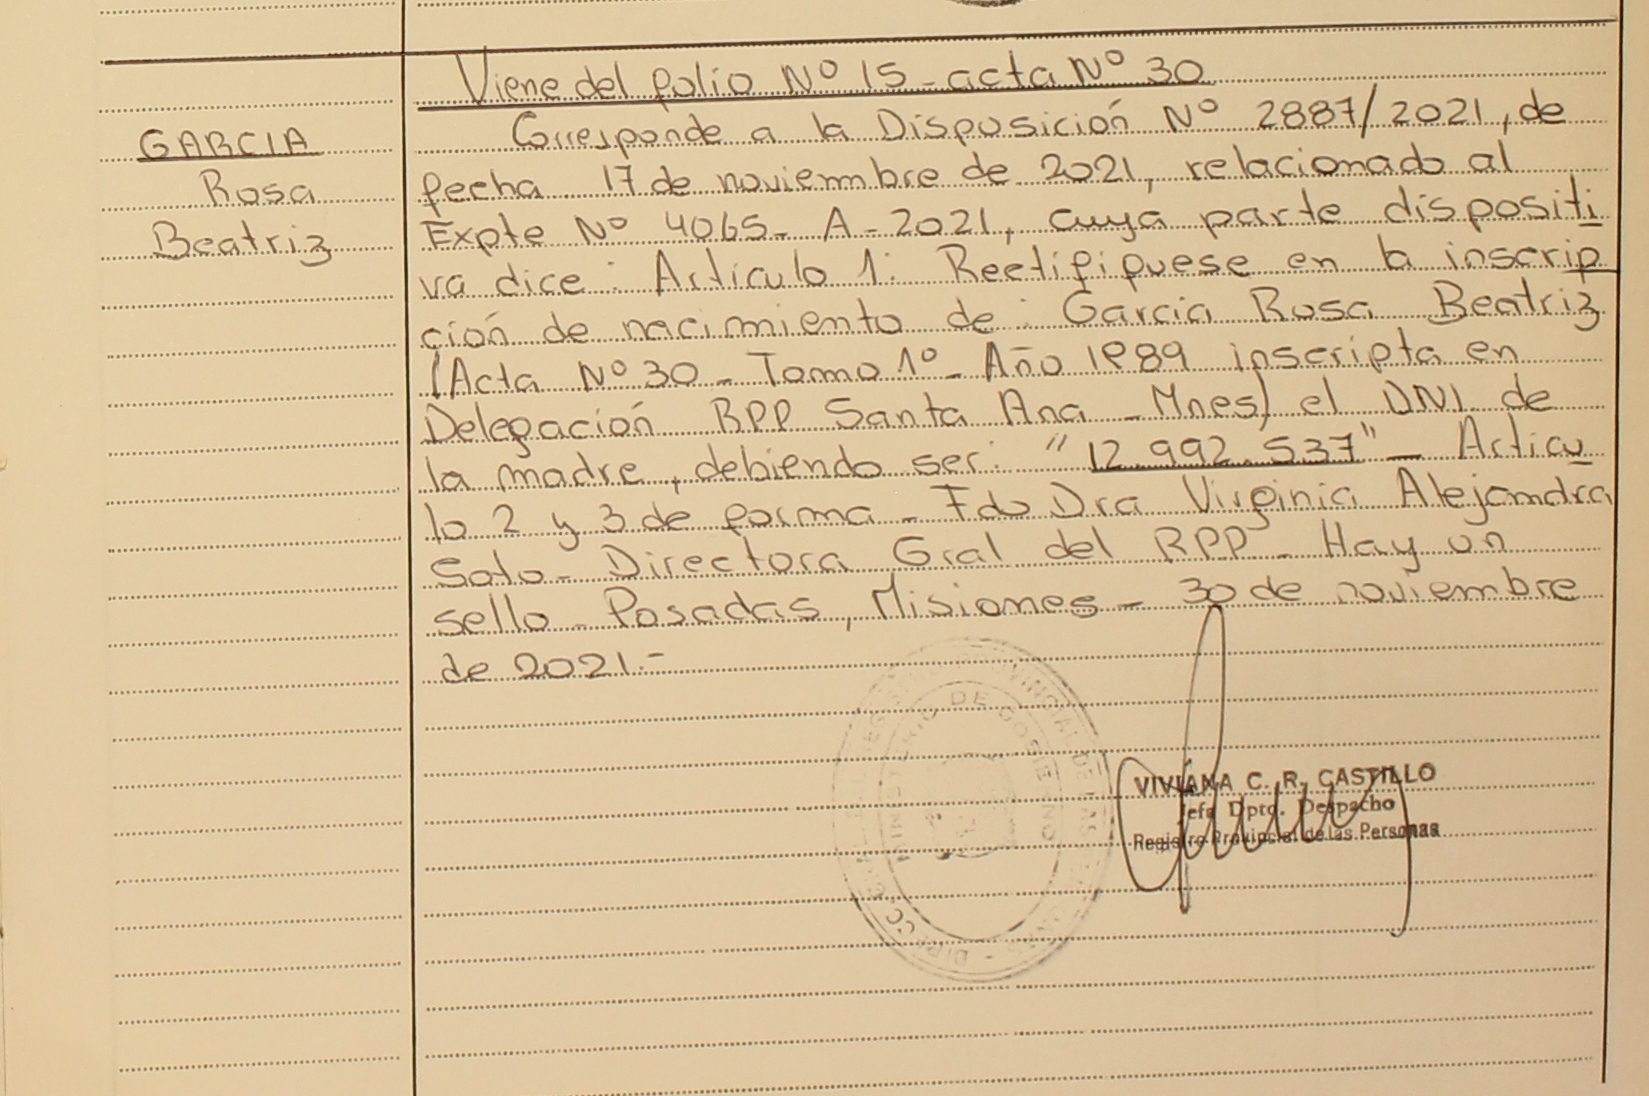 Viene del folio Nº 15 - acta Nº 30
GARCIA
Rosa
Beatriz
Corresponde a la Disposición Nº 2887/2021, de
fecha 17 de noviembre de 2021, relacionado al
Expte Nº 4065 - A - 2021, cuya parte dispositi
va dice: Artículo 1: Rectifiquese en la inscrip
ción de nacimiento de: Garcia Rosa Beatriz
(Acta Nº 30 - Tomo 1º - Año 1989 inscripta en
Delegación RPP Santa Ana - Mnes) el DNI de
la madre, debiendo ser: "12.992.537" - Articu
lo 2 y 3 de forma - Fdo Dra Virginia Alejandra
Soto - Directora Gral del RPP - Hay un
sello - Posadas, Misiones - 30 de noviembre
de 2021.-
MINISTERIO DE GOBIERNO
VIVIANA C. R. CASTILLO
Jefa Dpto. Despacho
Registro Provincial de las Personas